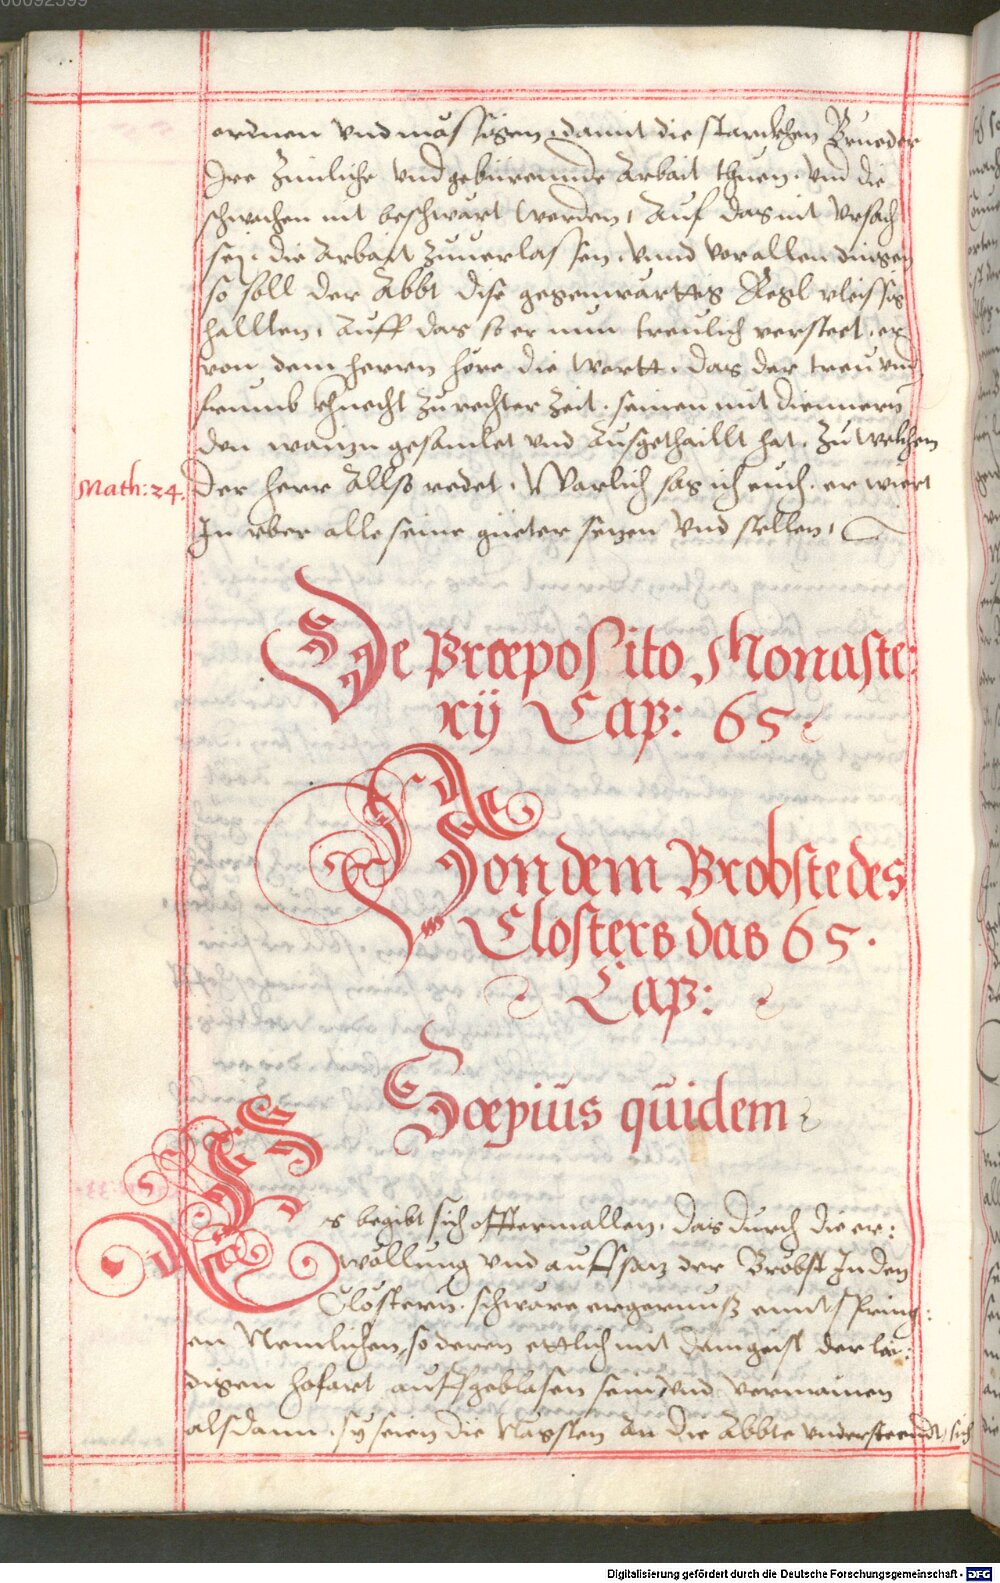 00092599
ordnen vnd mässigen, damit die starckhen Brueder
Ire zimliche vnd gebürennde Arbait thuen, vnd die
schwachen nit beschwärt werden, Auf das nit vrsach
sej, die Arbait zuuerlassen, vnnd vor allen dingen
so soll der Abbt dise gegenwärttig Regl vleissig
hallten, Auff das so er nun treulich versteet, er
von dem herrn höre die wortt, das der treu vnd
frumb khnecht zu rechter zeit, seinen mit diennern
den waizn gesamlet vnd Ausgethaillt hat, Zu welchem
Math: 24.
der herr Allso redet, Warlich sag ich euch, er wiert
In vber alle seine güeter sezen vnd stellen,
De Præposito Monaste:
rÿ Cap: 65.
Von dem Brobste des
Closters das 65.
Cap:
Sæpius quidem
Es begibt sich offtermallen, das durch die er:
wöllung vnd auffsaz der Bröbst In den
Clöstern, schwäre ergernuß entspring:
en Nemlichen, so deren ettlich mit dem geist der lai:
digen hofart auffgeblasen sein, vnd vermainen
alsdann, sy seien die Nägsten An die Äbbte vnndersteendt, sich
Digitalisierung gefördert durch die Deutsche Forschungsgemeinschaft - DFG